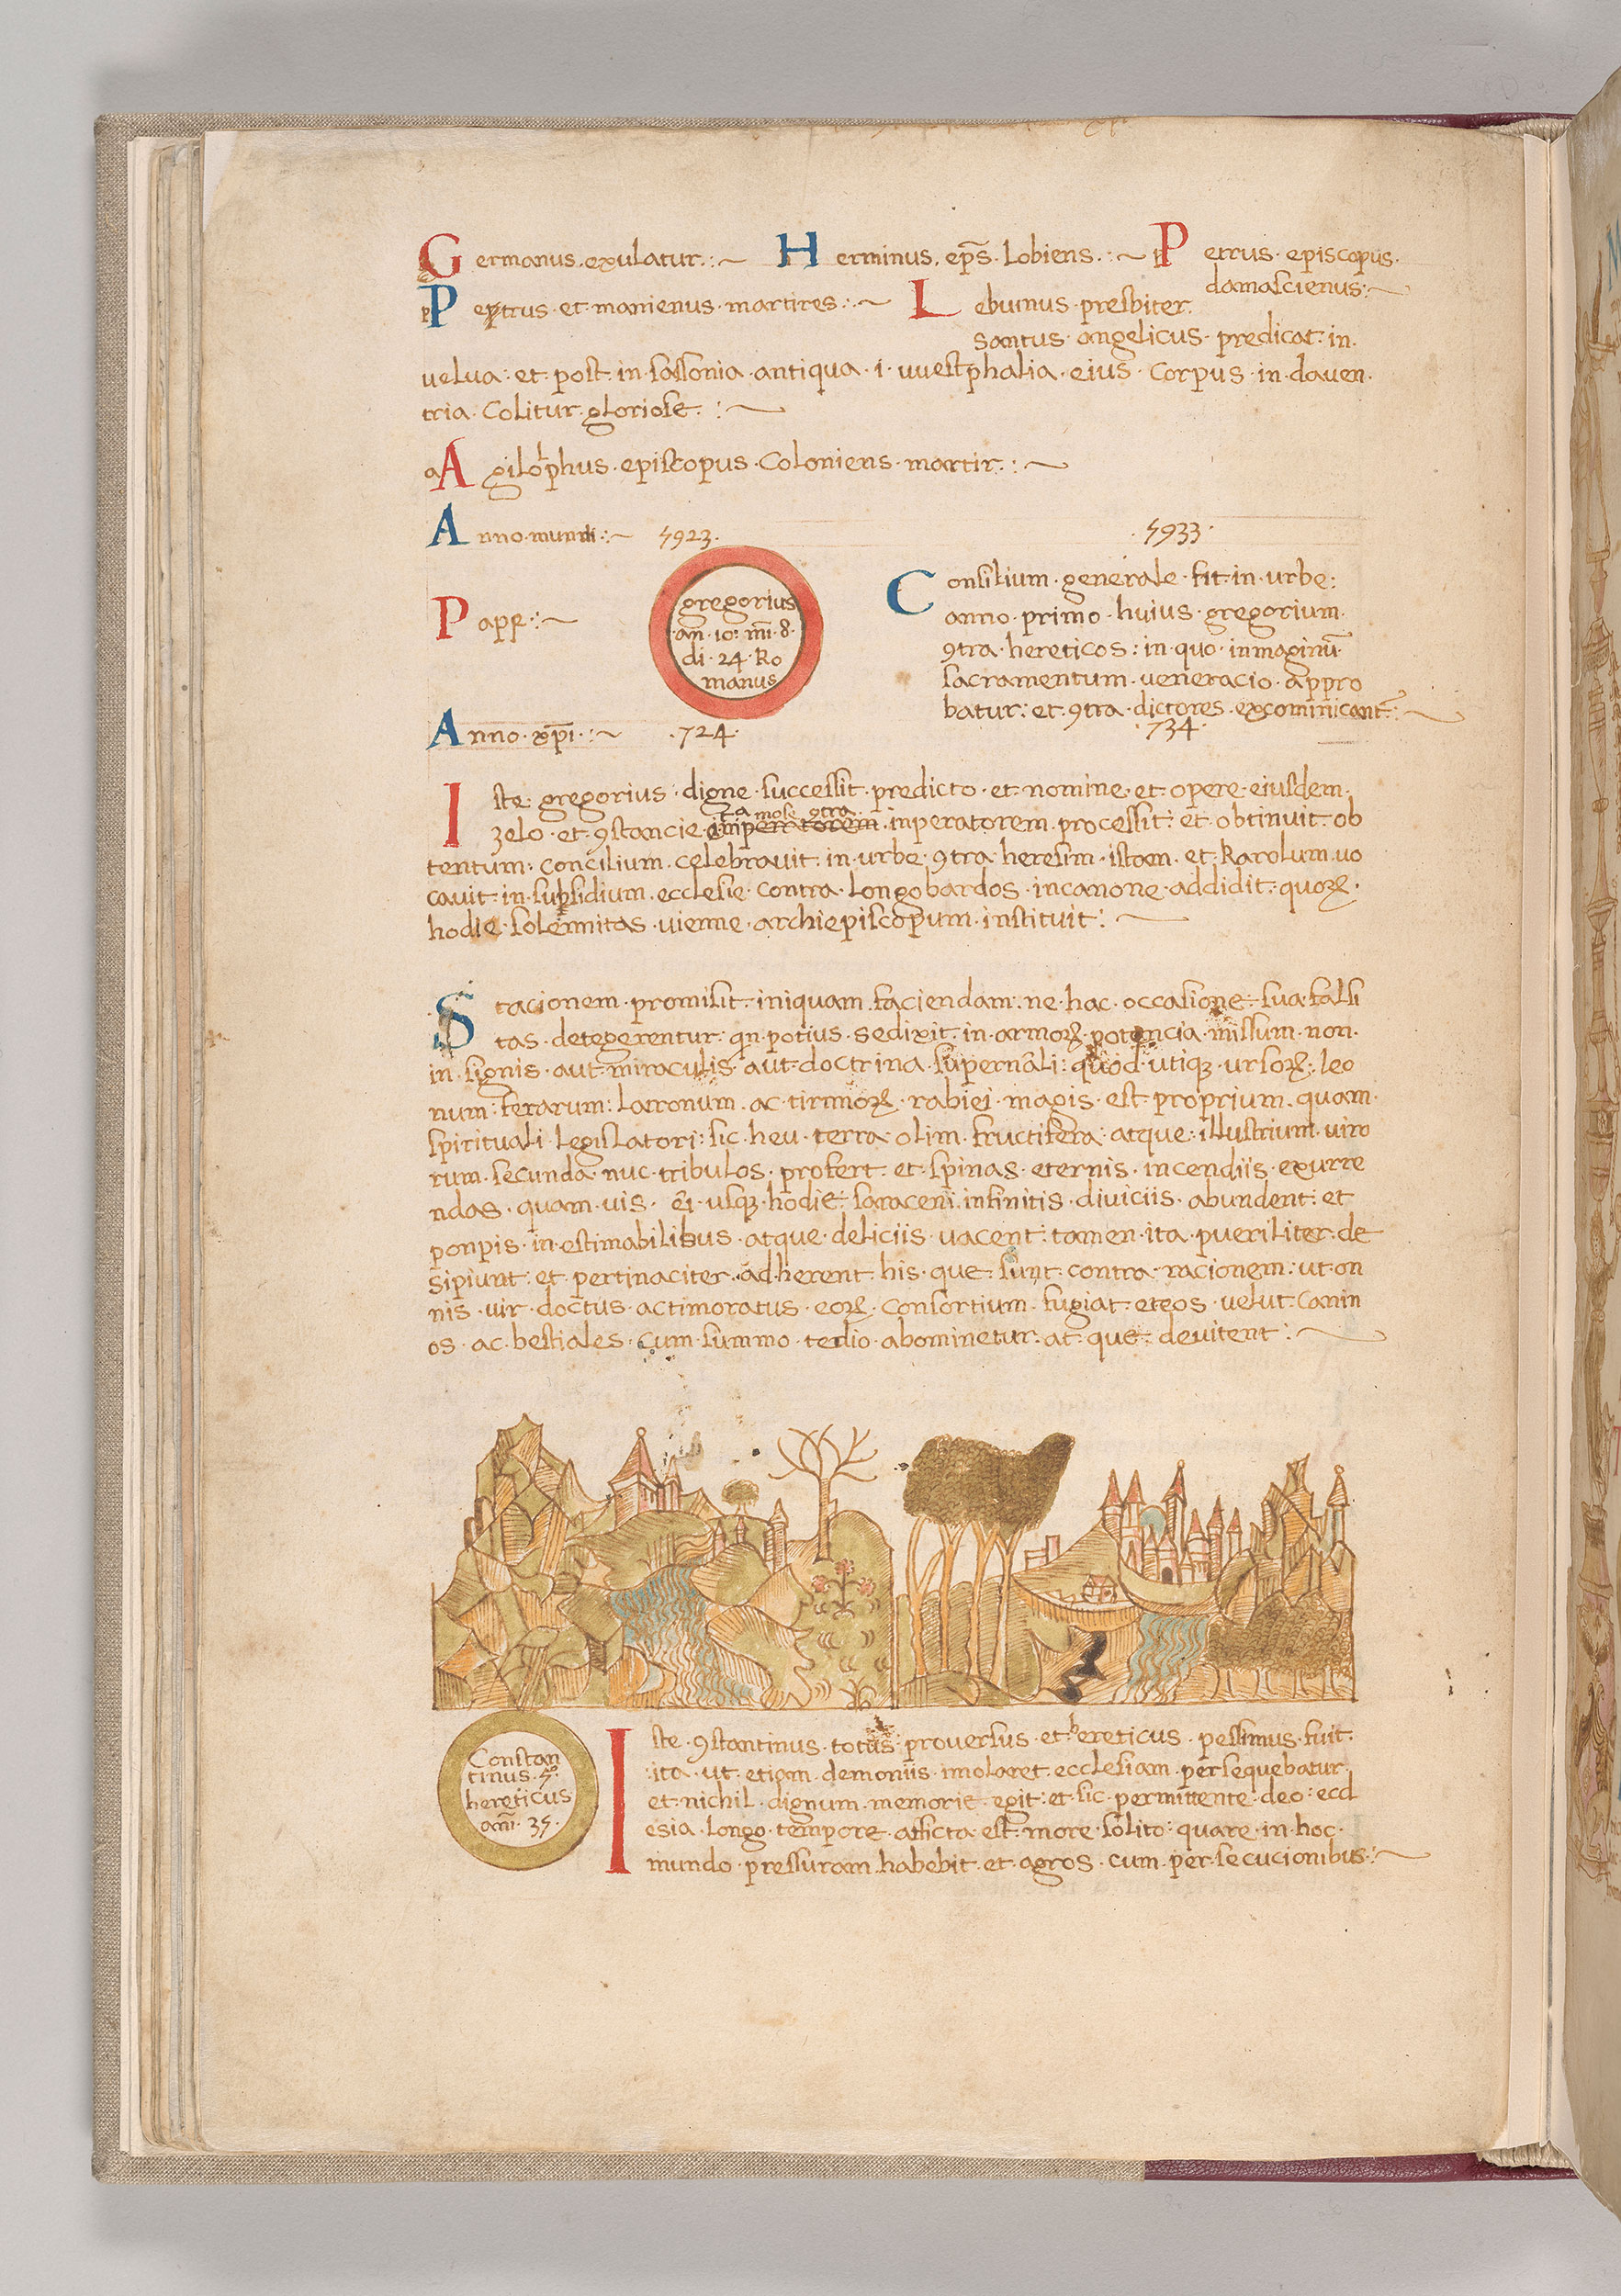 Germanus. exulatur.:~ Herminus. ep̄s. Lobiens.:~ Petrus. episcopus.
damascienus:~
Petrus. et. manienus. martires.:.~ Lebuinus. presbiter.
santus. angelicus. predicat. in.
velua: et. post. in. sassonia. antiqua. i. vvestphalia. eius. corpus. in. daven.
tria. Colitur. gloriose.:~
Agilolphus. episcopus. Coloniens. martir.:~
Anno. mundi:~ 5923. 5933.
Consilium. generale. fit. in. urbe:
anno. primo. huius. gregorium.
Pape:~
gregorius
an. 10. m̄i. 8.
di. 24. Ro
manus
9tra. hereticos: in. quo. inmaginū.
sacramentum. veneracio. appro
batur: et. 9tra. dictores. excominicant:~
Anno. xp̄i.:~ .724. .734.
Iste. gregorius. digne. successit. predicto. et. nomine. et. opere. eiusdem.
ta mose 9tra
zelo. et. 9stancie. inperatorem. inperatorem. processit: et. obtinuit. ob
tentum: concilium. celebravit. in. urbe. 9tra. heresim. istam. et. Karolum. vo
cavit. in. subsidium. ecclesie. contra. Longobardos. incanone. addidit: quoꝝ.
hodie. solemnitas. vienne. archiepiscopum. instituit:~
Stacionem. promisit. iniquam. faciendam. ne. hac. occasione. sua. falsi
tas. detegerentur: qn. potius. sedixit. in. armoꝝ. potencia. missum. non.
in. signis. aut. miraculis. aut. doctrina. supernali: quod. utiqꝫ. ursoꝝ. leo
num: ferarum: latronum. ac. tirannoꝝ. rabiei. magis. est. proprium. quam.
spirituali. legislatori: sic. heu. terra. olim. fructifera: atque: illustrium. viro
rum. secunda. nuc. tribulos. profert. et. spinas. eternis. incendiis. exurre
ndas. quam. vis. usqꝫ. hodie. saraceni. infinitis. diviciis. abundent: et
ponpis. in. estimabilibus. atque. deliciis. vacent: tamen. ita. pueriliter. de
sipiunt: et. pertinaciter. adherent. his. que. sunt. contra. racionem: ut. on
nis. vir. doctus. actimoratus. eoꝝ. consortium. fugiat. eteos. velut. canin
os. ac. bestiales. cum. summo. tedio. abominetur. at. que. devitent:~
Constan
tinus. 5º.
hereticus
anī. 35.
Iste. 9stantinus. totus. proversus. et hereticus. pessimus. fuit.
ita. ut. etiam. demoniis. imolaret. ecclesiam. persequebatur.
et. nichil. dignum. memorie. egit: et. sic. permittente. deo: eccl
esia. longo. tempore. afficta. est. more. solito: quare. in. hoc.
mundo. pressuram. habebit. et. agros. cum. persecucionibus.:~